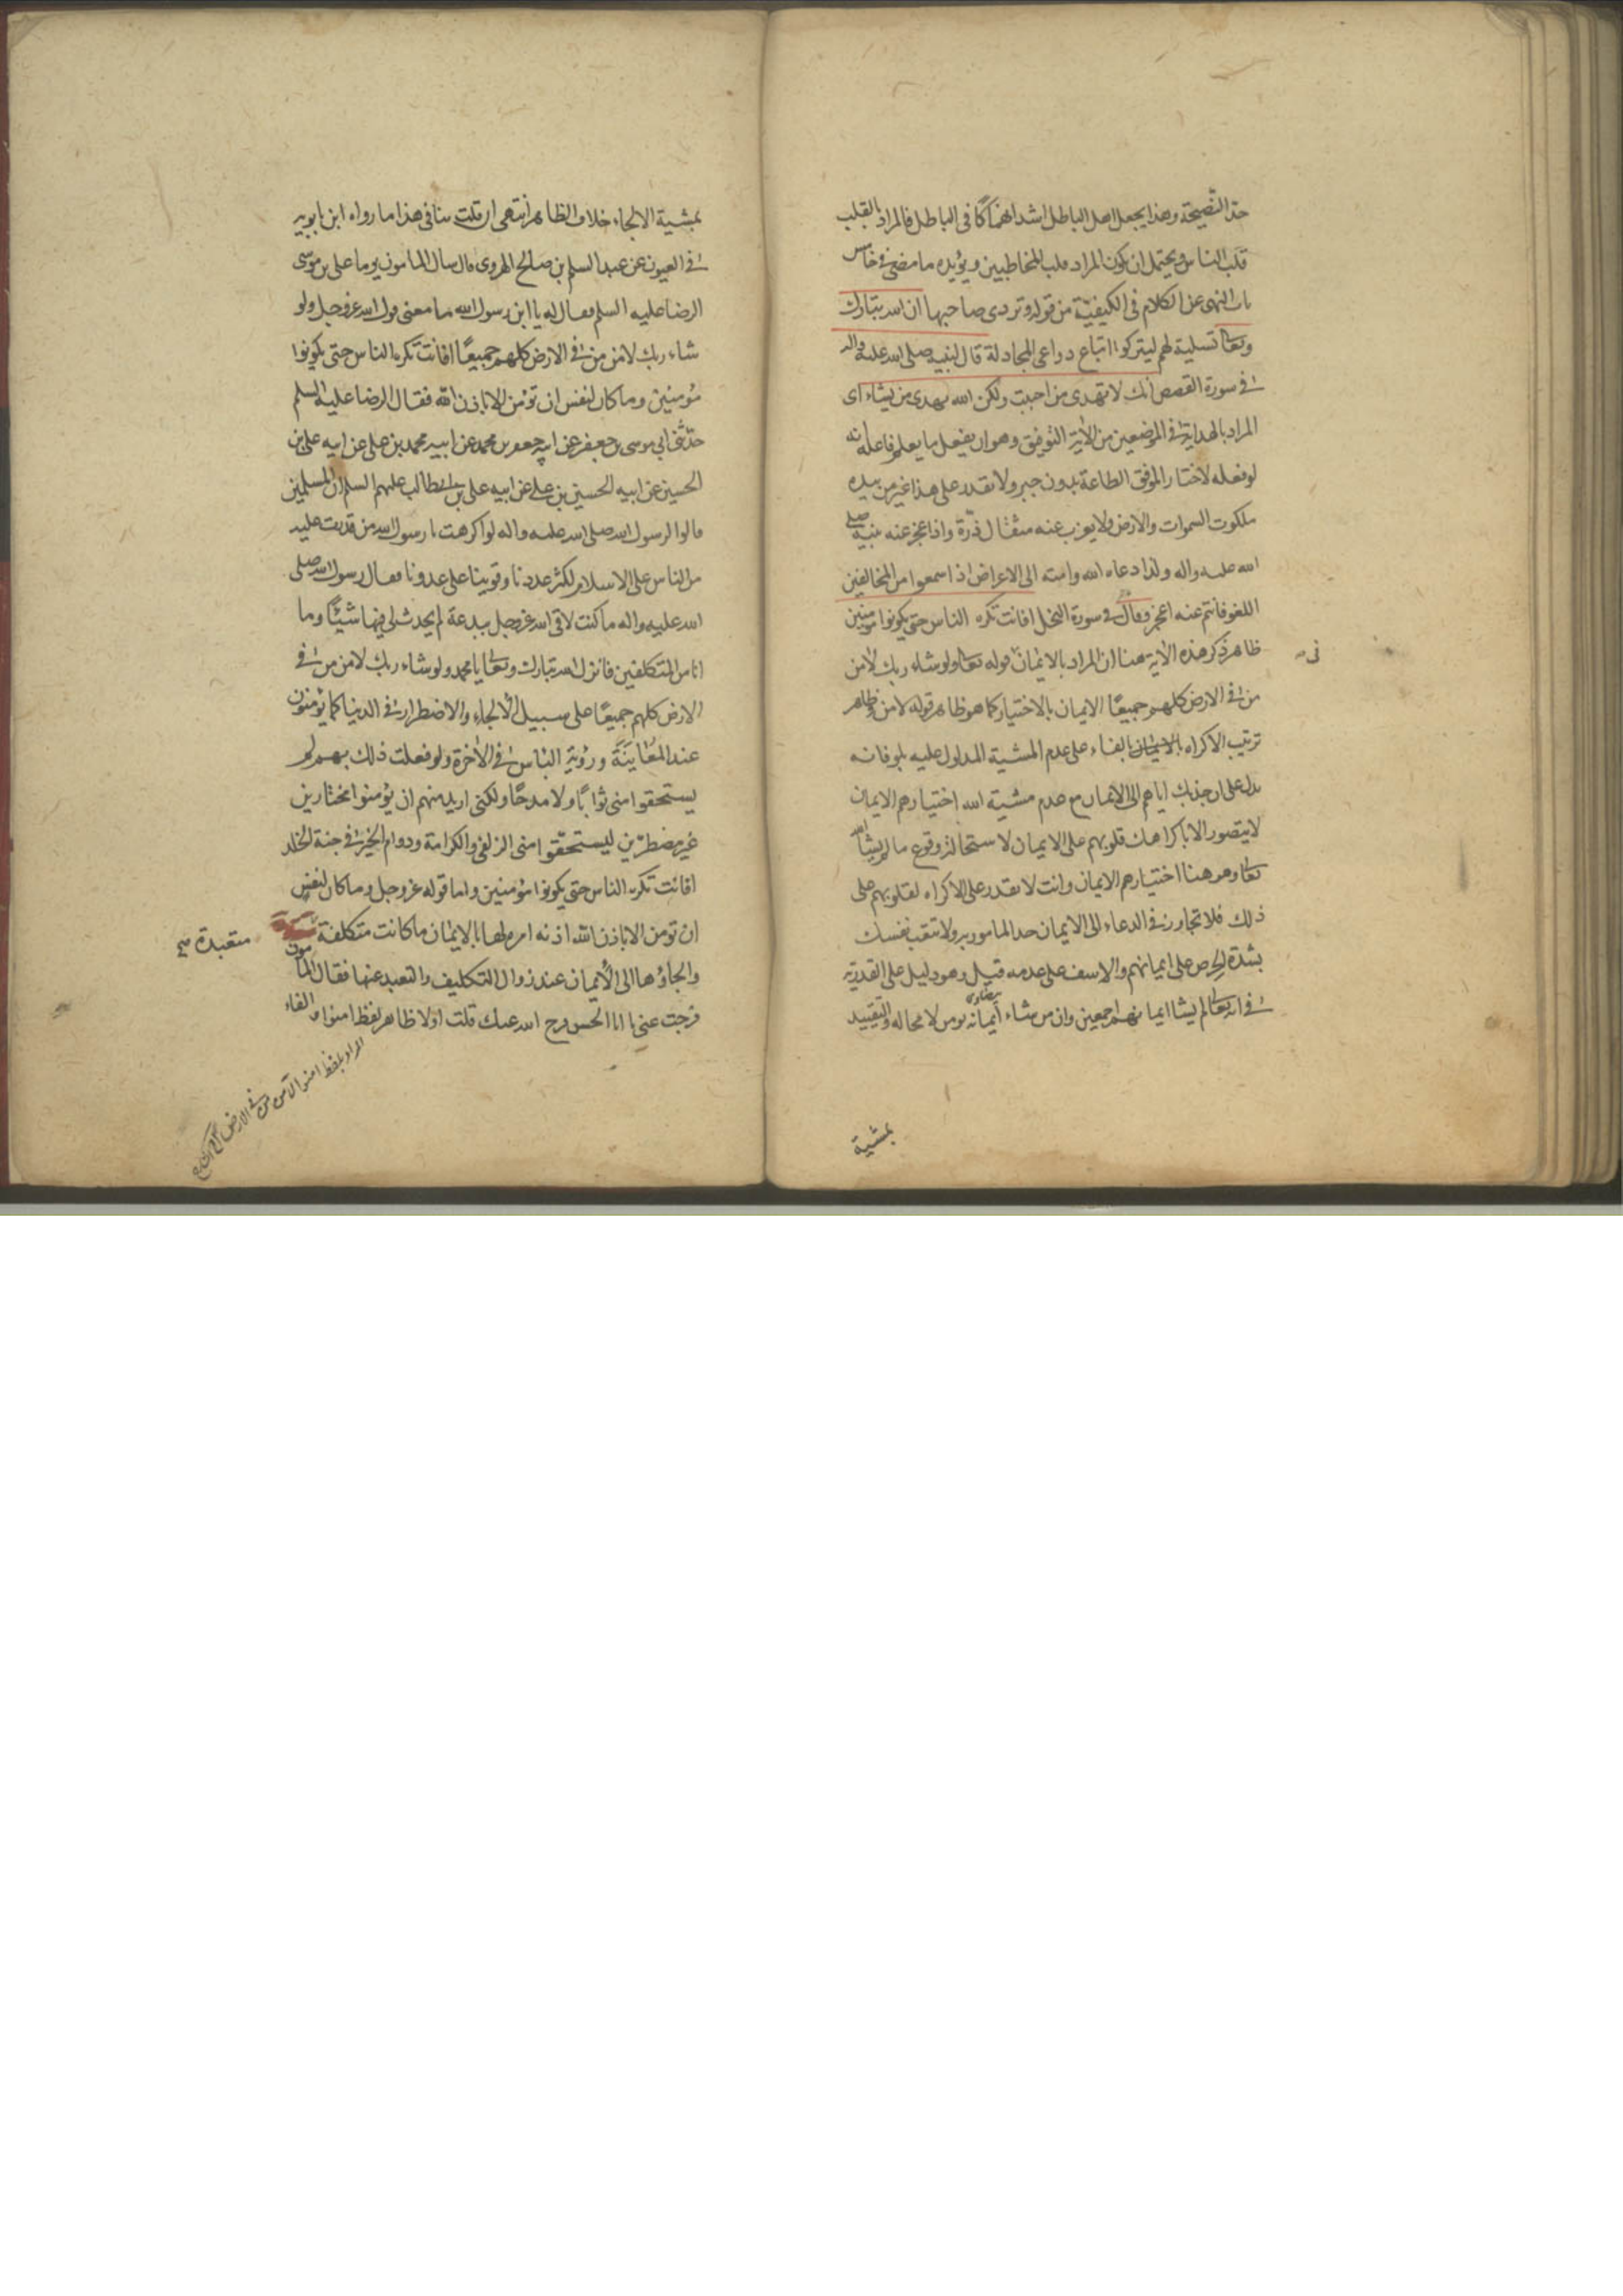 حدّ النّصيحة وهذا يجعل اهل الباطل اشد انهماكًا فى الباطل فالمراد بالقلب
قلب الناس ويحتمل ان يكون المراد قلب المخاطبين ويؤيده ما مضى فى خامس
باب النهى عن الكلام فى الكيفيّة من قوله وتردى صاحبها ان الله تبارك
وتعالى تسلية لهم ليتركوا اتباع دواعى المجادلة قال لنبيه صلى الله عليه واله
فى سورة القصص انك لا تهدى من احببت ولكن الله يهدى من يشاء اى
المراد بالهداية فى الموضعين من الآية التوفيق وهو ان يفعل ما يعلم فاعله انه
لو فعله لاختار الموفق الطاعة بدون جبر ولا يقدر على هذا غير من بيده
ملكوت السموات والارض ولا يعزب عنه مثقال ذرّة واذا عجز عنه نبيه صلى
الله عليه واله ولذا دعاه الله وامته الى الاعراض اذا سمعوا من المخالفين
اللغو فانتم عنه اعجز وقال فى سورة النحل افانت تكره الناس حتى يكونوا مؤمنين
نى
ظاهر ذكر هذه الآية هنا ان المراد بالايمان قوله تعالى ولو شاء ربك لآمن
من فى الارض كلهم جميعًا الايمان بالاختيار كما هو ظاهر قوله لآمن وظاهر
ترتيب الاكراه بالايمان بالفاء على عدم المشية المدلول عليه بلو فانه
يدل على ان جذبك اياهم الى الايمان مع عدم مشية الله اختيارهم الايمان
لا يتصور الا باكراهك قلوبهم على الايمان لاستحالة وقوع ما لم يشأ الله
تعالى وهو هنا اختيارهم الايمان وانت لا تقدر على الاكراه لقلوبهم على
ذلك فلا تجاوز فى الدعاء الى الايمان حد المامور به ولا تتعب نفسك
بشدة الحرص على ايمانهم والاسف على عدمه قيل وهو دليل على القدرية
فى انه تعالى لم يشا ايمانهم اجمعين وان من شاء ايمانه يومن لا محالة والتقييد
بيضاوى
بمشية
بمشية الالجاء خلاف الظاهر انتهى ان قلت ينافى هذا ما رواه ابن بابويه
فى العيون عن عبد السلم بن صالح الهروى قال سال المامون يوما على بن موسى
الرضا عليه السلم فقال له يا ابن رسول الله ما معنى قول الله عز وجل ولو
شاء ربك لآمن من فى الارض كلهم جميعًا افانت تكره الناس حتى يكونوا
مؤمنين وما كان لنفس ان تؤمن الا باذن الله فقال الرضا عليه السلم
حدّثنى ابى موسى بن جعفر عن ابيه جعفر بن محمد عن ابيه محمد بن على عن ابيه على بن
الحسين عن ابيه الحسين بن على عن ابيه على بن ابيطالب عليهم السلم ان المسلمين
قالوا لرسول الله صلى الله عليه واله لو اكرهت يا رسول الله من قدرت عليه
من الناس على الاسلام لكثر عددنا وقوينا على عدونا فقال رسول الله صلى
الله عليه واله ما كنت لالقى الله عز وجل ببدعة لم يحدث لى فيها شيئًا وما
انا من المتكلفين فانزل الله تبارك وتعالى يا محمد ولو شاء ربك لآمن من فى
الارض كلهم جميعًا على سبيل الالجاء والاضطرار فى الدنيا كما يؤمنون
عند المُعاينة ورؤية الباس فى الآخرة ولو فعلت ذلك بهم لم
يستحقوا منى ثوابًا ولا مدحًا ولكنى اريد منهم ان يؤمنوا مختارين
غير مضطرّين ليستحقّوا منى الزلفى والكرامة ودوام الخير فى جنة الخلد
افانت تكره الناس حتى يكونوا مؤمنين واما قوله عز وجل وما كان لنفس
ان تومن الا باذن الله اذنه امره لها بالايمان ما كانت متكلفة
متعبدة صح
والجاؤها الى الايمان عند زوال التكليف والتعبد عنها فقال المامون
فرجت عنى يا ابا الحسن فرج الله عنك قلت اولا ظاهر لفظ امنوا والفاء
المراد بلفظ امنوا لآمن من فى الارض